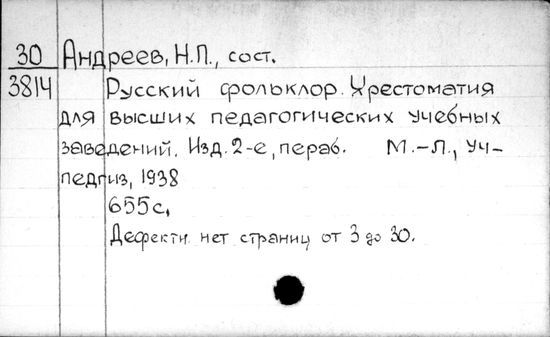 30 Андреев, Н.П., сост.
3814 Русский фольклор. Хрестоматия
для высших педагогических учебных
заведений. Изд. 2-е, пераб. М.-Л., Уч-
педгиз, 1938
655с.
Дефектн. нет страниц от 3 до 30.